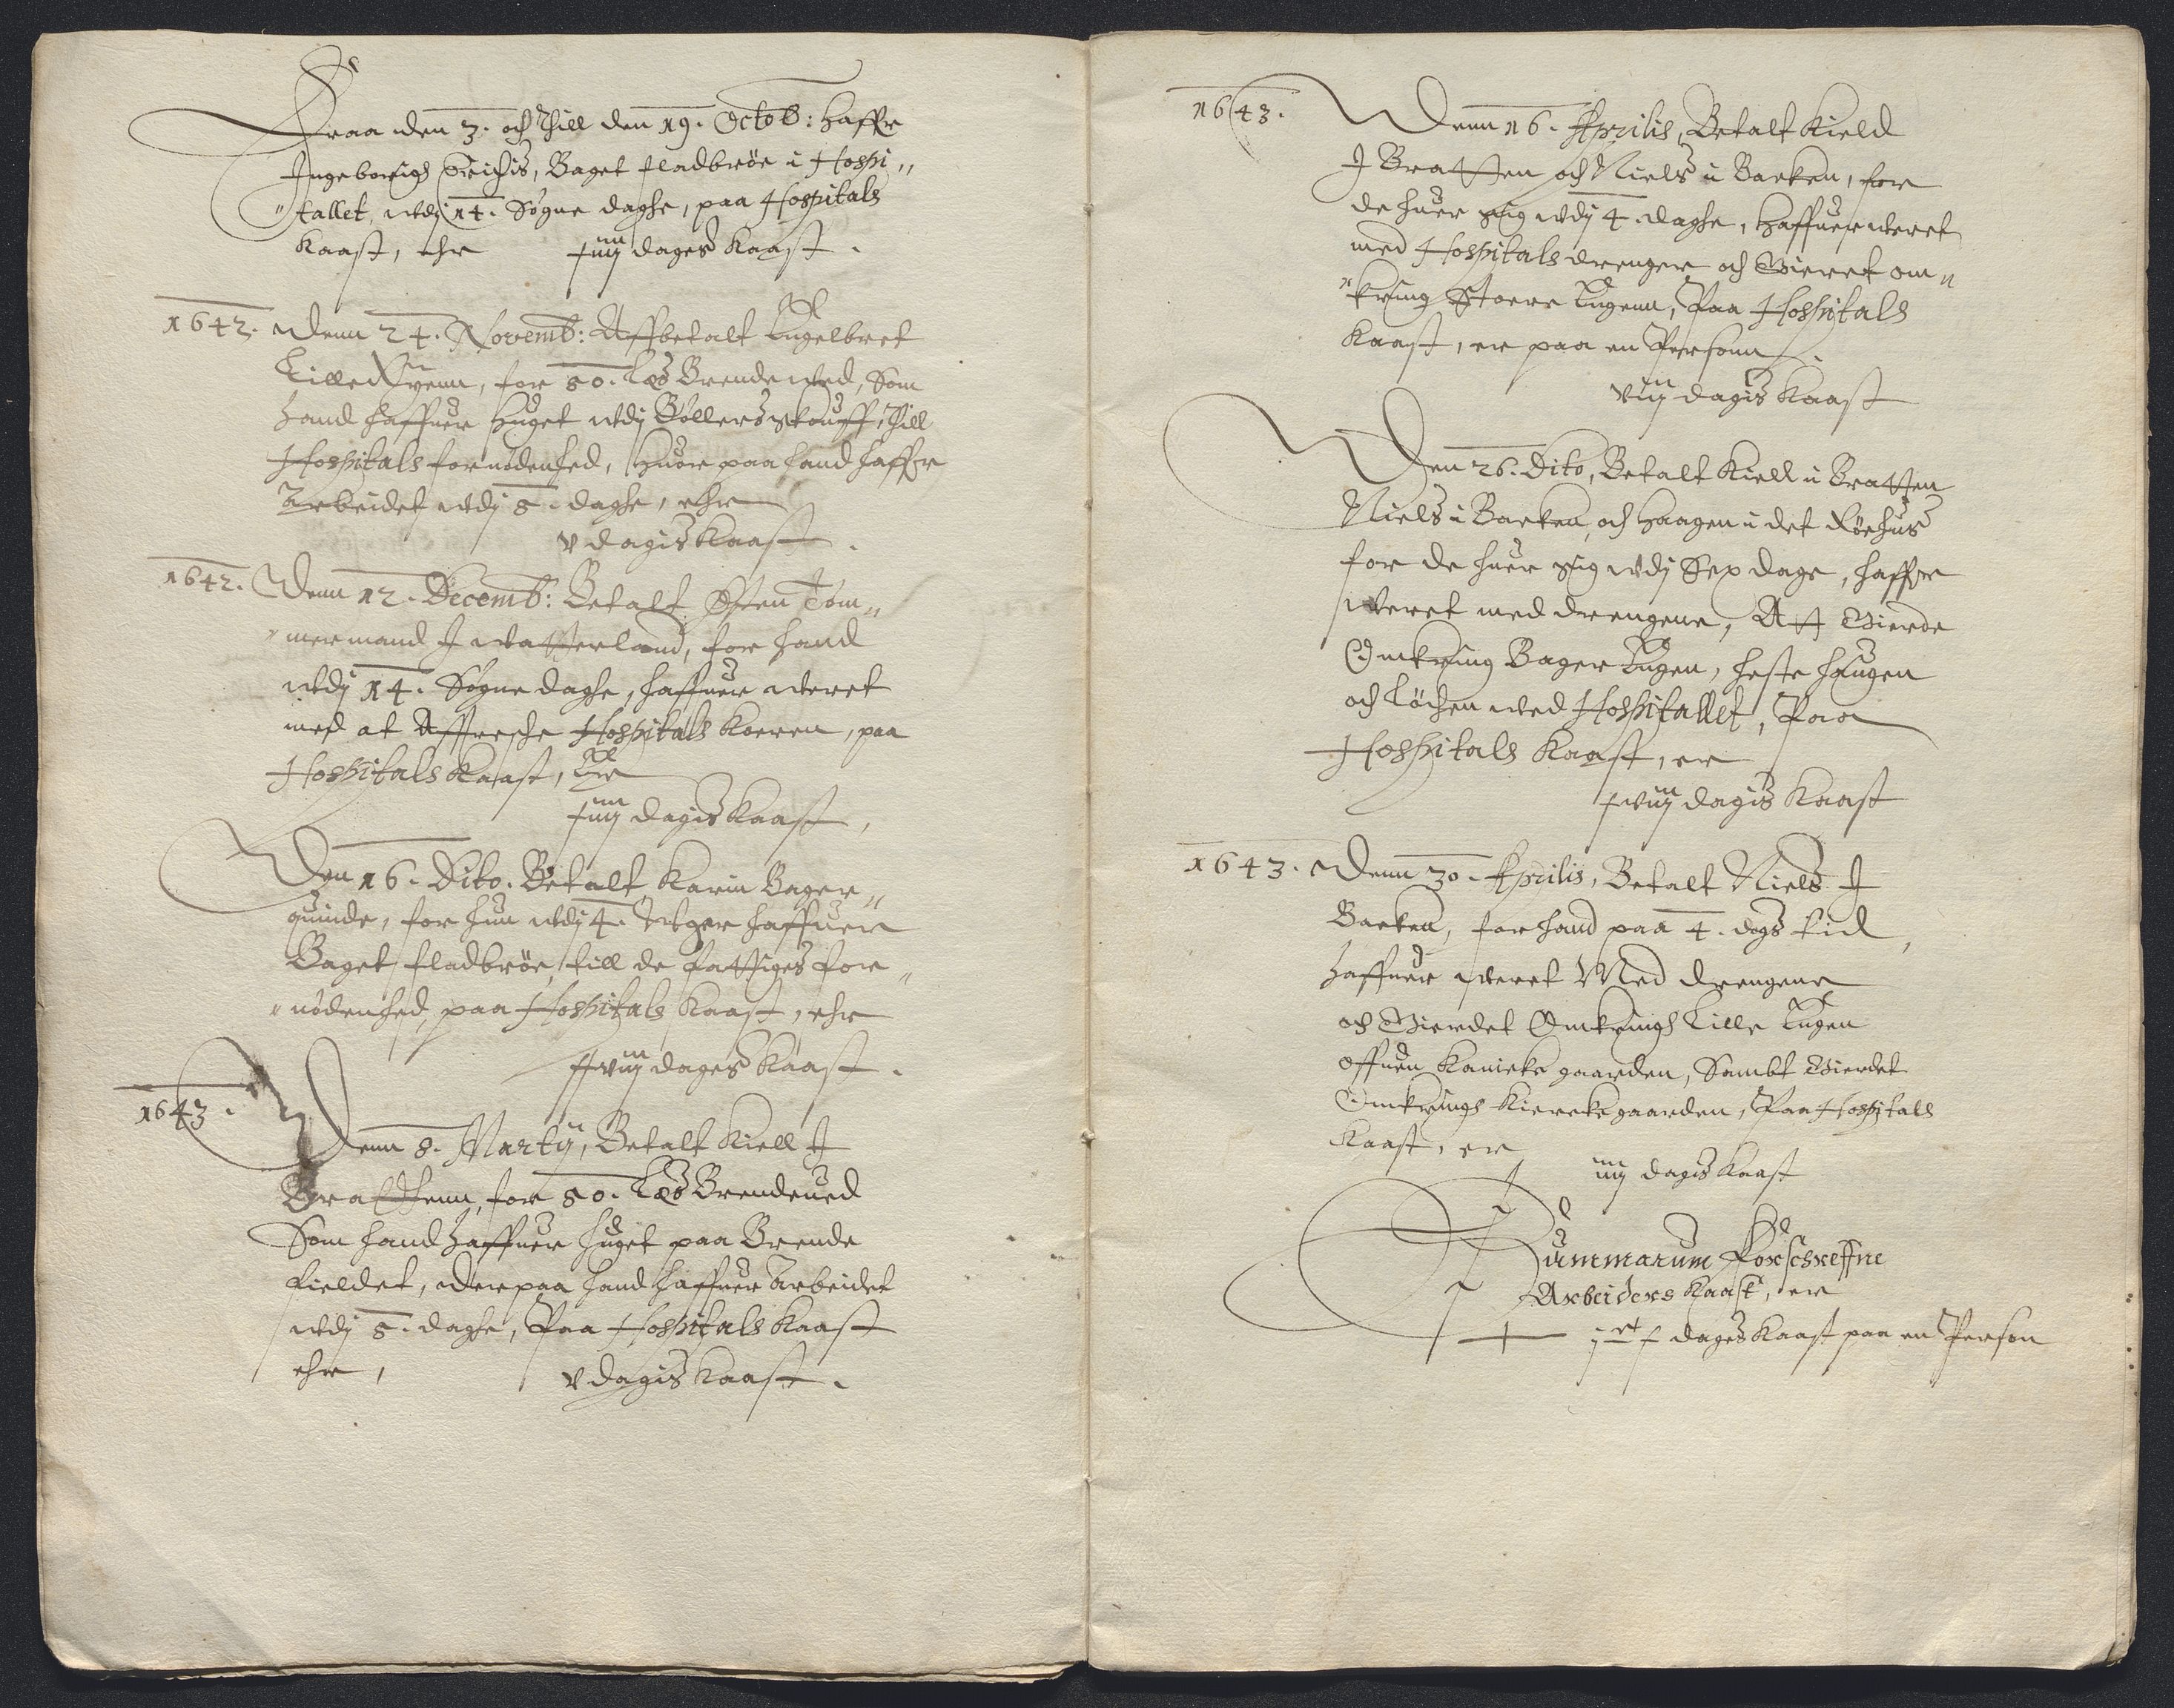 Fraa den 3. och Thill den 19. Octob: Haffr
Ingeborigh Erichis, Baget fladbrøe i Hospi„
„tallet, wdj 14. Søgne daghe, paa Hospitals
Kaast, ehr xiiij dages Kaast.
1642. Denn 24. Novemb: Affbetalt Engelbret
Lille, for 50. Læs Brende wed, Som
Hand haffuer Huget wdj Bøllerskouff, Thill
Hospitals fornødenhed, Huor paa hand haffr
Arbeidet wdj 5. daghe, ehr
v dagis Kaast.
1642. Denn 12. Decemb: Betalt Sten Tom„
„mermand I Watterland, for hand
wdj 14. Søgne daghe, haffuer weret
med at Hospitals, paa
Hospitals Kaast, Ehr
xiiij dagis Kaast,
Den 16. Dito. Betalt Karin Bager„
quinde, for hun wdj 4. Wger haffuer
Baget fladbrøe, till de fattiges for„
„nødenhed, paa Hospitals Kaast, ehr
xxviij dages Kaast.
1643. Denn 8. Martij, Betalt Kiell I
Bratthenn, for 50. Læs Brendeued
Som hand Haffuer huget paa Brende
fieldet, Derpaa hand haffuer Arbeidet
wdj 5. daghe, Paa Hospitals Kaast
ehr, v dagis Kaast.
1643. Denn 16. Aprilis, Betalt Kield
I Bratten och Niels i Backen, for
de huer sig wdj 4. daghe, Haffuer weret
med Hospitals drenger och Gieret om„
„kring Stoere Engenn, Paa Hospitals
Kaast, er paa en Personn.
viij dagis Kaast
Den 26. Dito, Betalt Kiell i Bratten
Niels i Backen, och Haagen i det Røehus
for de huer sig wdj Sex dage, haffr
weret med drengene, Att Gierde
Omkring Bager Engen, heste haugen
och Løchen wed Hospitallet, Paa
Hospitals Kaast, er
xviij dagis Kaast
1643. Denn 30. Aprilis, Betalt Niels I
Backen, for hand paa 4. dags tid,
haffuer weret Med drengene
och Gierdet Omkringh Lille Engen
offuen Kanicke gaarden, Sambt Gierdet
Omkringh Kierckegaarden, Paa Hospitals
Kaast, er
iiij dagis Kaast
Summarum Forschreffne
Arbeiders Kaast, er
dages Kaast paa en Person